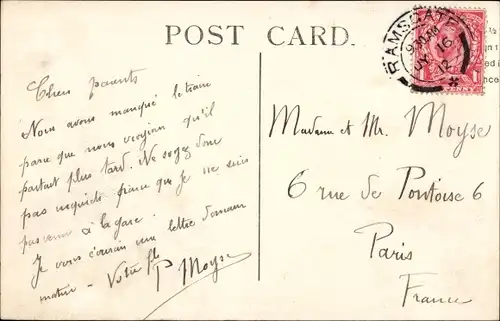 POST CARD.
RAMSGATE
JY 16
12
PENNY
Chers parents
Nous avons manqué le train
parce que nous croyions qu'il
partait plus tard. Ne soyez donc
pas inquiets parce que je ne suis
pas venu à la gare.
Je vous écrirai une lettre demain
matin - Votre fils
P Moyse
Madame et Mr. Moyse
6 rue de Pontoise 6
Paris
France